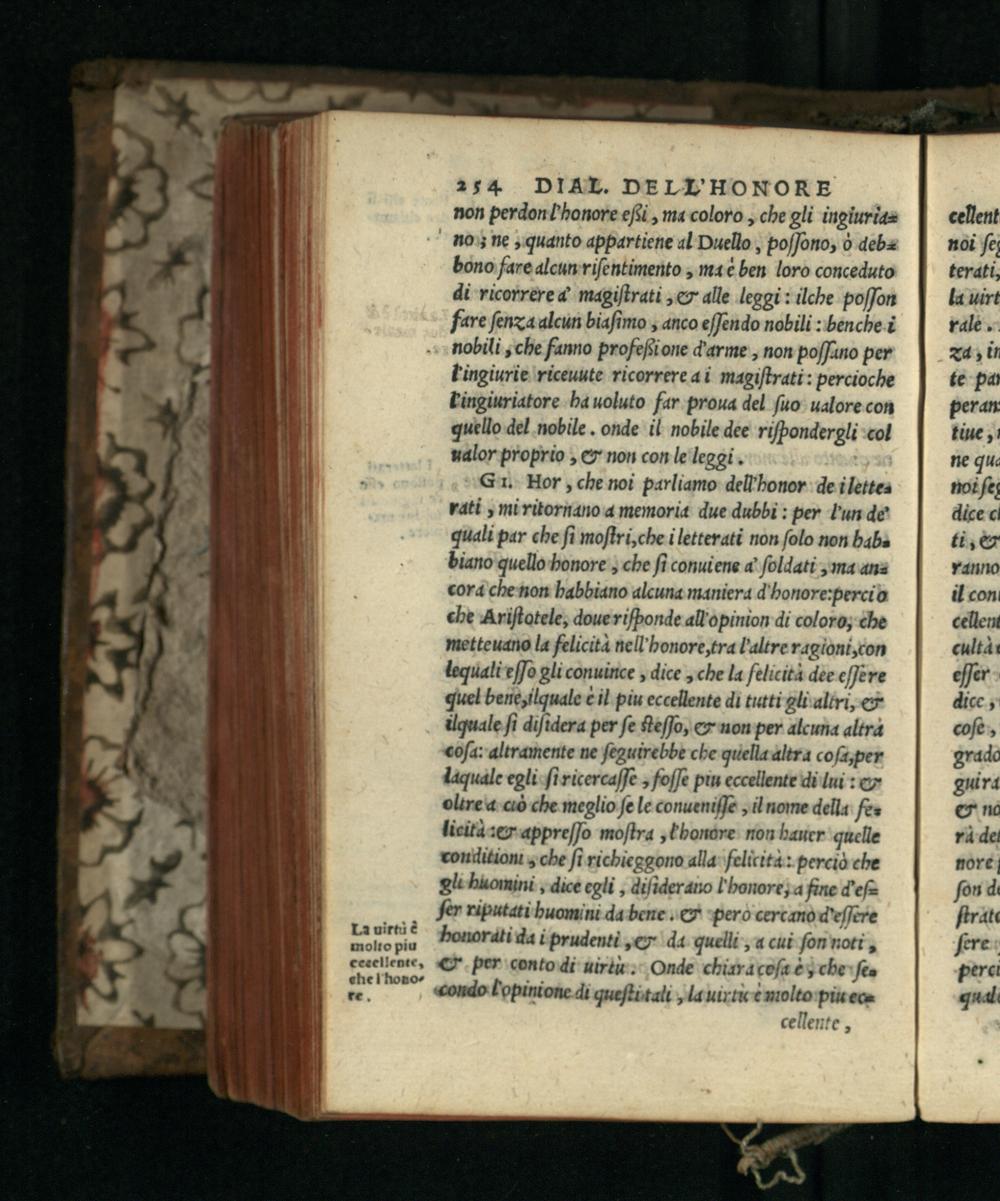 254 DIAL. DELL'HONORE
non perdon l'honore eßi, ma coloro, che gli ingiuria=
no; ne, quanto appartiene al Duello, poſſono, ò deb=
bono fare alcun riſentimento, ma è ben loro conceduto
di ricorrere a' magiſtrati, & alle leggi: ilche poſſon
fare ſenza alcun biaſimo, anco eſſendo nobili: benche i
nobili, che fanno profeßione d'arme, non poſſano per
l'ingiurie riceuute ricorrere a i magiſtrati: percioche
l'ingiuriatore ha uoluto far proua del ſuo ualore con
quello del nobile. onde il nobile dee riſpondergli col
ualor proprio, & non con le leggi.
GI. Hor, che noi parliamo dell'honor de i lette=
rati, mi ritornano a memoria due dubbi: per l'un de'
quali par che ſi moſtri, che i letterati non ſolo non hab=
biano quello honore, che ſi conuiene a' ſoldati, ma an=
cora che non habbiano alcuna maniera d'honore: percio
che Ariſtotele, doue riſponde all'opinion di coloro, che
metteuano la felicità nell'honore, tra l'altre ragioni, con
lequali eſſo gli conuince, dice, che la felicità dee eſſere
quel bene, ilquale è il piu eccellente di tutti gli altri, &
ilquale ſi diſidera per ſe steſſo, & non per alcuna altra
coſa: altramente ne ſeguirebbe che quella altra coſa, per
laquale egli ſi ricercaſſe, foſſe piu eccellente di lui: &
oltre a ciò che meglio ſe le conueniſſe, il nome della fe=
licità: & appreſſo moſtra, l'honore non hauer quelle
conditioni, che ſi richieggono alla felicità: perciò che
gli huomini, dice egli, diſiderano l'honore, a fine d'eſ=
ſer riputati huomini da bene. & però cercano d'eſſere
honorati da i prudenti, & da quelli, a cui ſon noti,
& per conto di uirtù. Onde chiara coſa è, che ſe=
condo l'opinione di queſti tali, la uirtù è molto piu ec=
cellente,
La uirtù è
molto piu
eccellente,
che l'hono=
re.
cellent
noi ſeg
terati,
la uirt
rale.
za, in
te par
peran
tiue,
ne qua
noi ſeg
dice c
ti, &
ranno
il con
cellent
cultà
eſſer
dice,
coſe,
grado
guira
& no
rà del
nore
ſon d
ſtrat
ſere
perci
qual